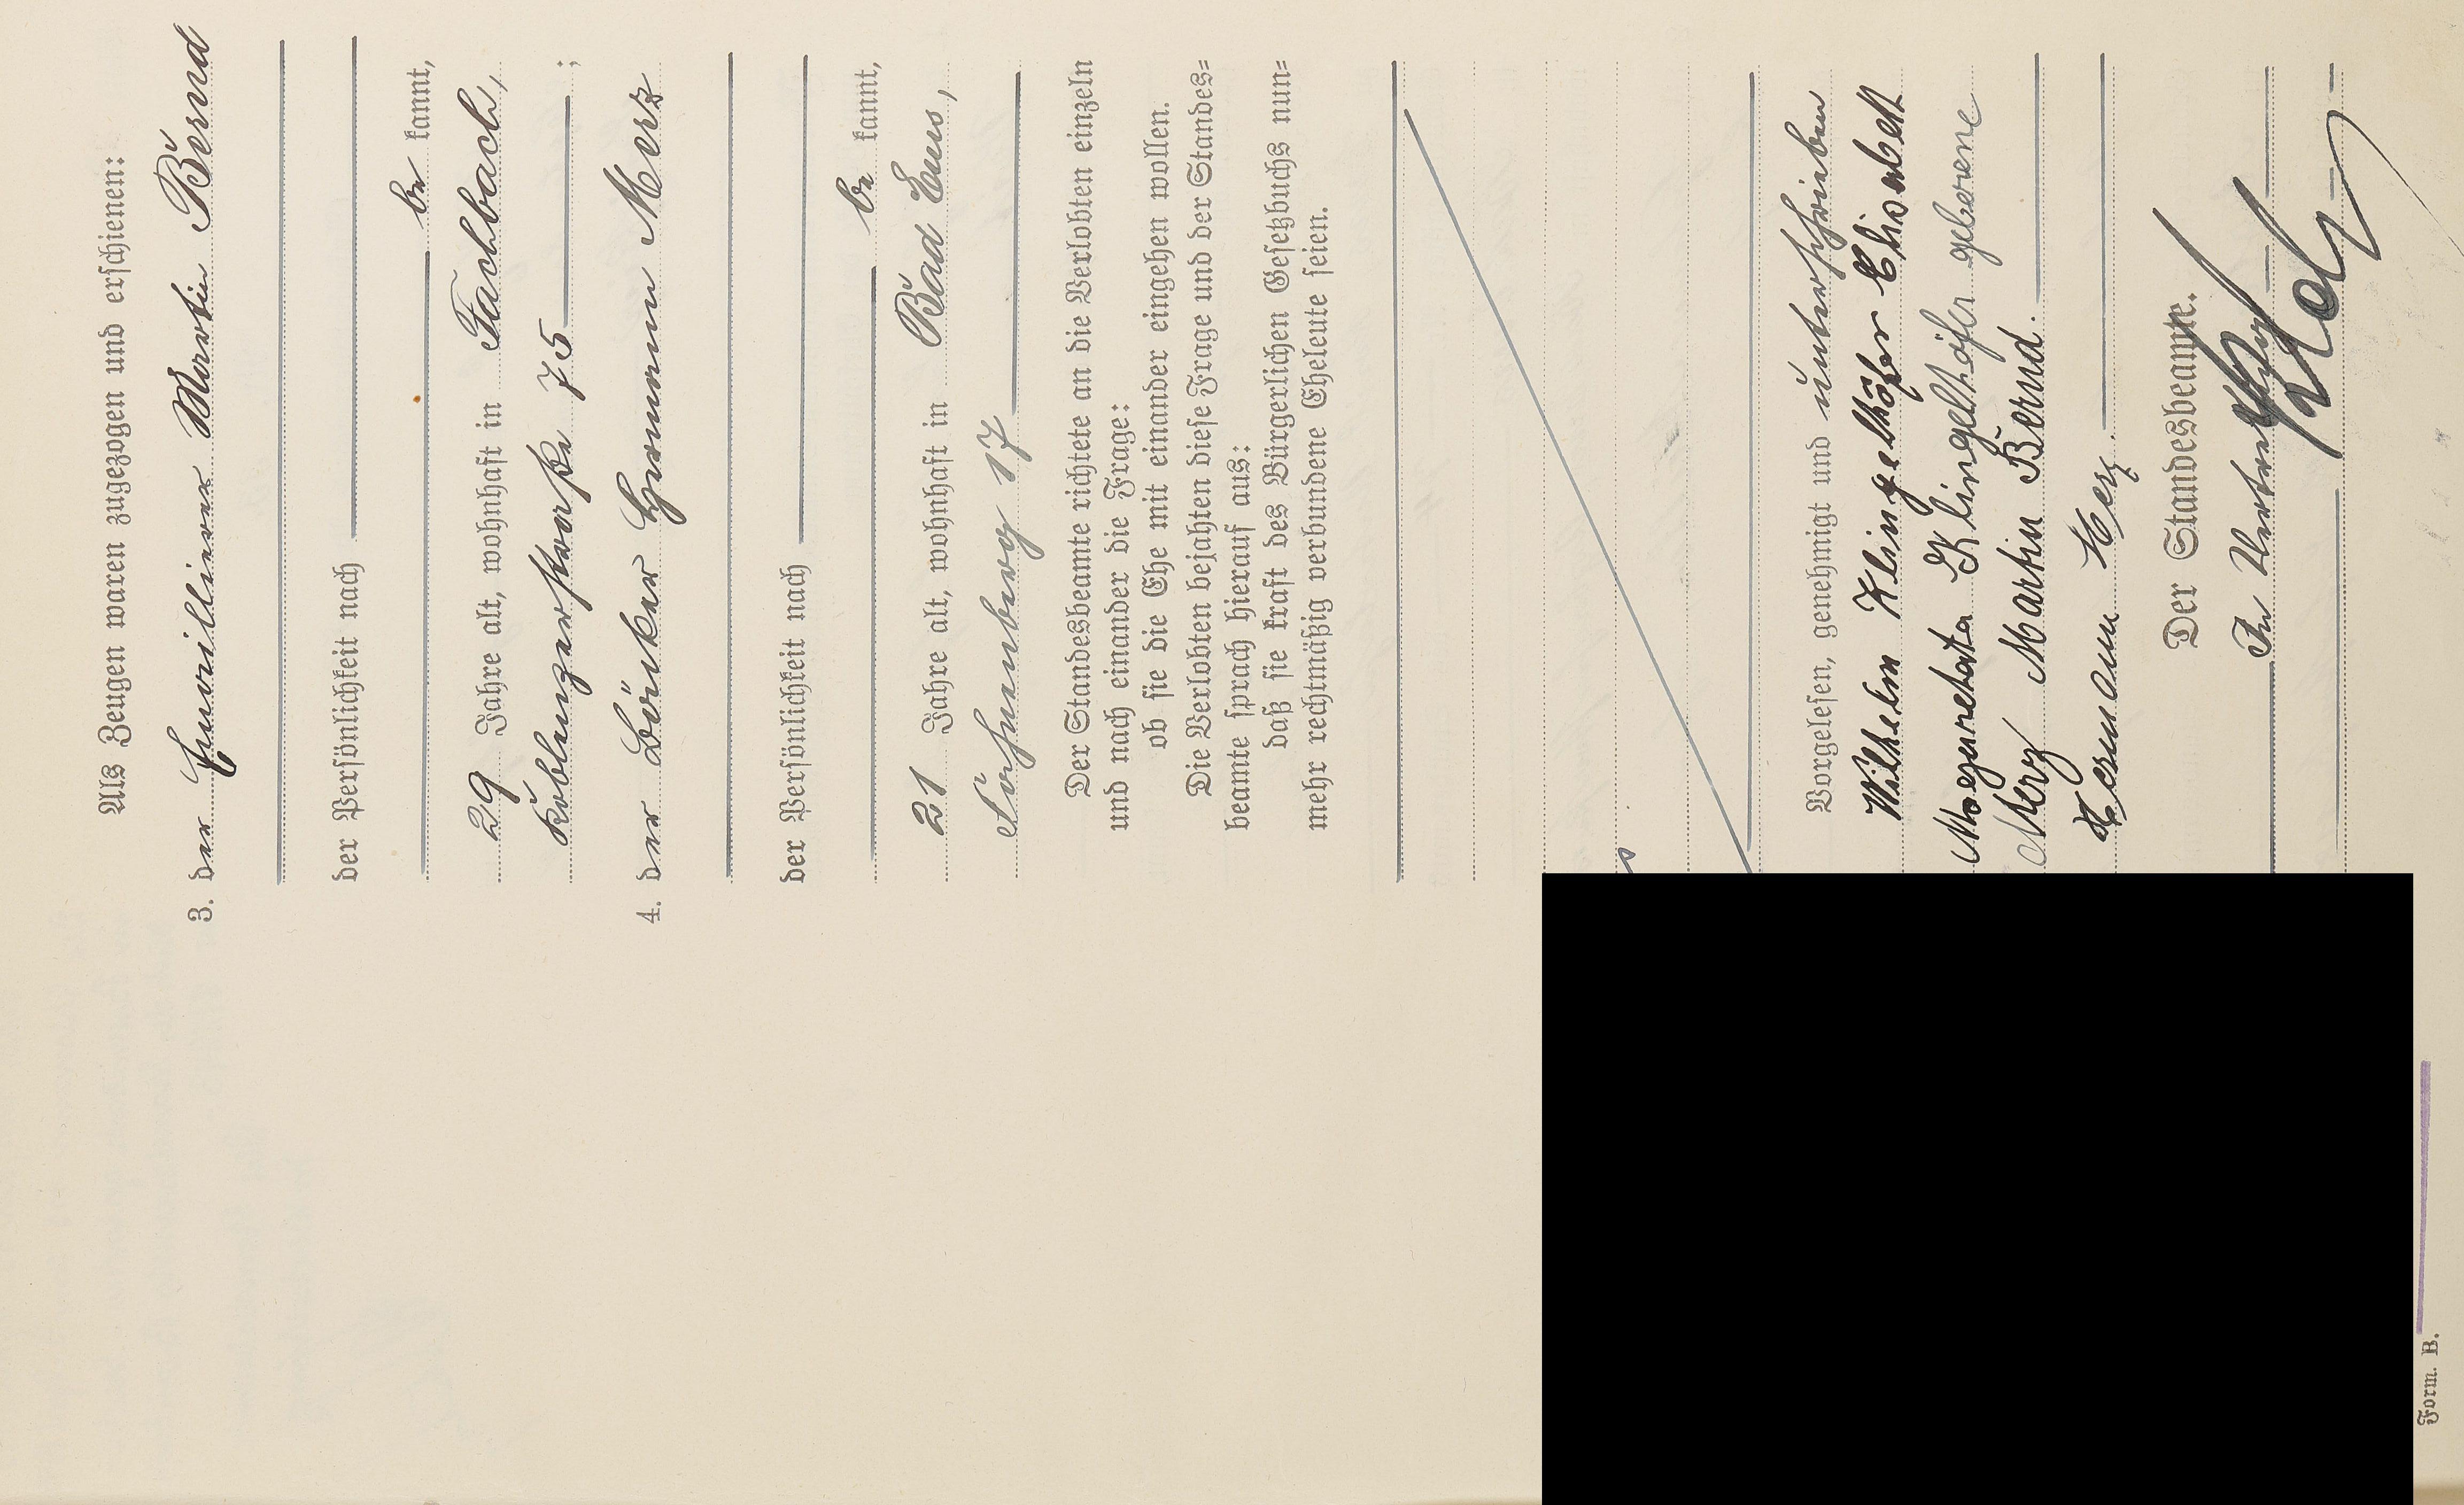 Als Zeugen waren zugezogen und erschienen:
3. der Emaillierer Martin Bernd
der Persönlichkeit nach
be kannt,
29 Jahre alt, wohnhaft in Fachbach,
Koblenzerstraße 75 ;
4. der Bäcker Hermann Merz
der Persönlichkeit nach
be kannt,
21 Jahre alt, wohnhaft in Bad Ems,
17
Der Standesbeamte richtete an die Verlobten einzeln
und nach einander die Frage:
ob sie die Ehe mit einander eingehen wollen.
Die Verlobten bejahten diese Frage und der Standes=
beamte sprach hierauf aus:
daß sie kraft des Bürgerlichen Gesetzbuchs nun=
mehr rechtmäßig verbundene Eheleute seien.
Vorgelesen, genehmigt und unterschrieben
Wilhelm Klingelhöfer Elisabeth
Margaretata Klingelhöfer geborene
Merz Martin Bernd.
Hermann Merz.
Der Standesbeamte.
In Vertretung
Form. B.